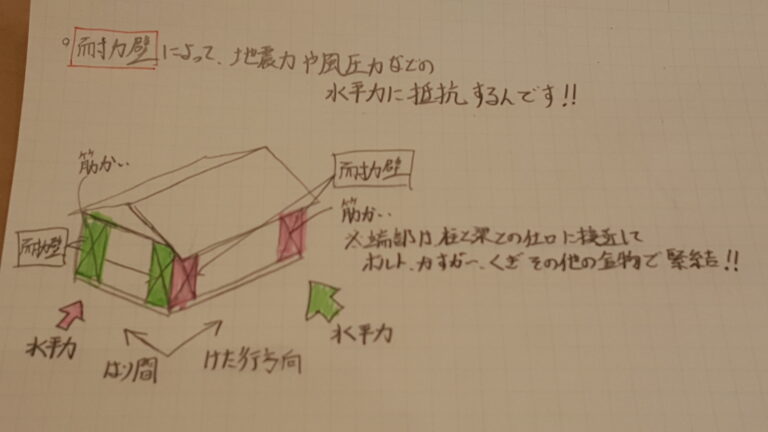 。耐力壁によって、地震力や風圧力などの
水平力に抵抗するんです!!
筋かい
耐力壁
筋かい
※端部は、柱と梁との仕口に接近して
ボルト、かすがい、くぎその他の金物で緊結!!
耐力壁
水平力
はり間
けた行方向
水平力